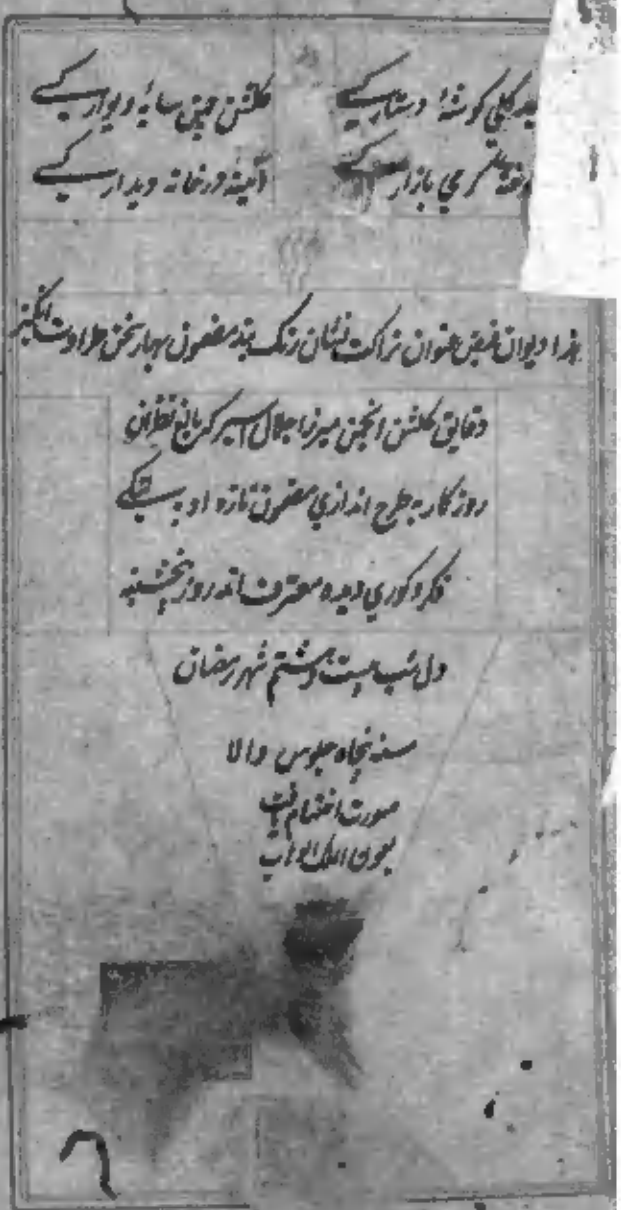 کلی گوشهٔ دستار کسے گلشن چین سایهٔ دیوار کسے
گرمی بازار کسے آئینه در خانه دیدار کسے
هذا دیوان فیض عنوان نزاکت نشان رنگ بند مضمون بهار سخن طراوت انگیز
دقایق گلشن انجمن میرزا جلال اسیر که بالغ نظران
روزگار به طرح اندازی مضمون تازه او به
فکر و کوری دیده معترف اند روز پنجشنبه
دل شب بیست و هشتم شهر رمضان
سنه پنجاه جلوس والا
صورت اختتام یافت
بعون الملک الوهاب